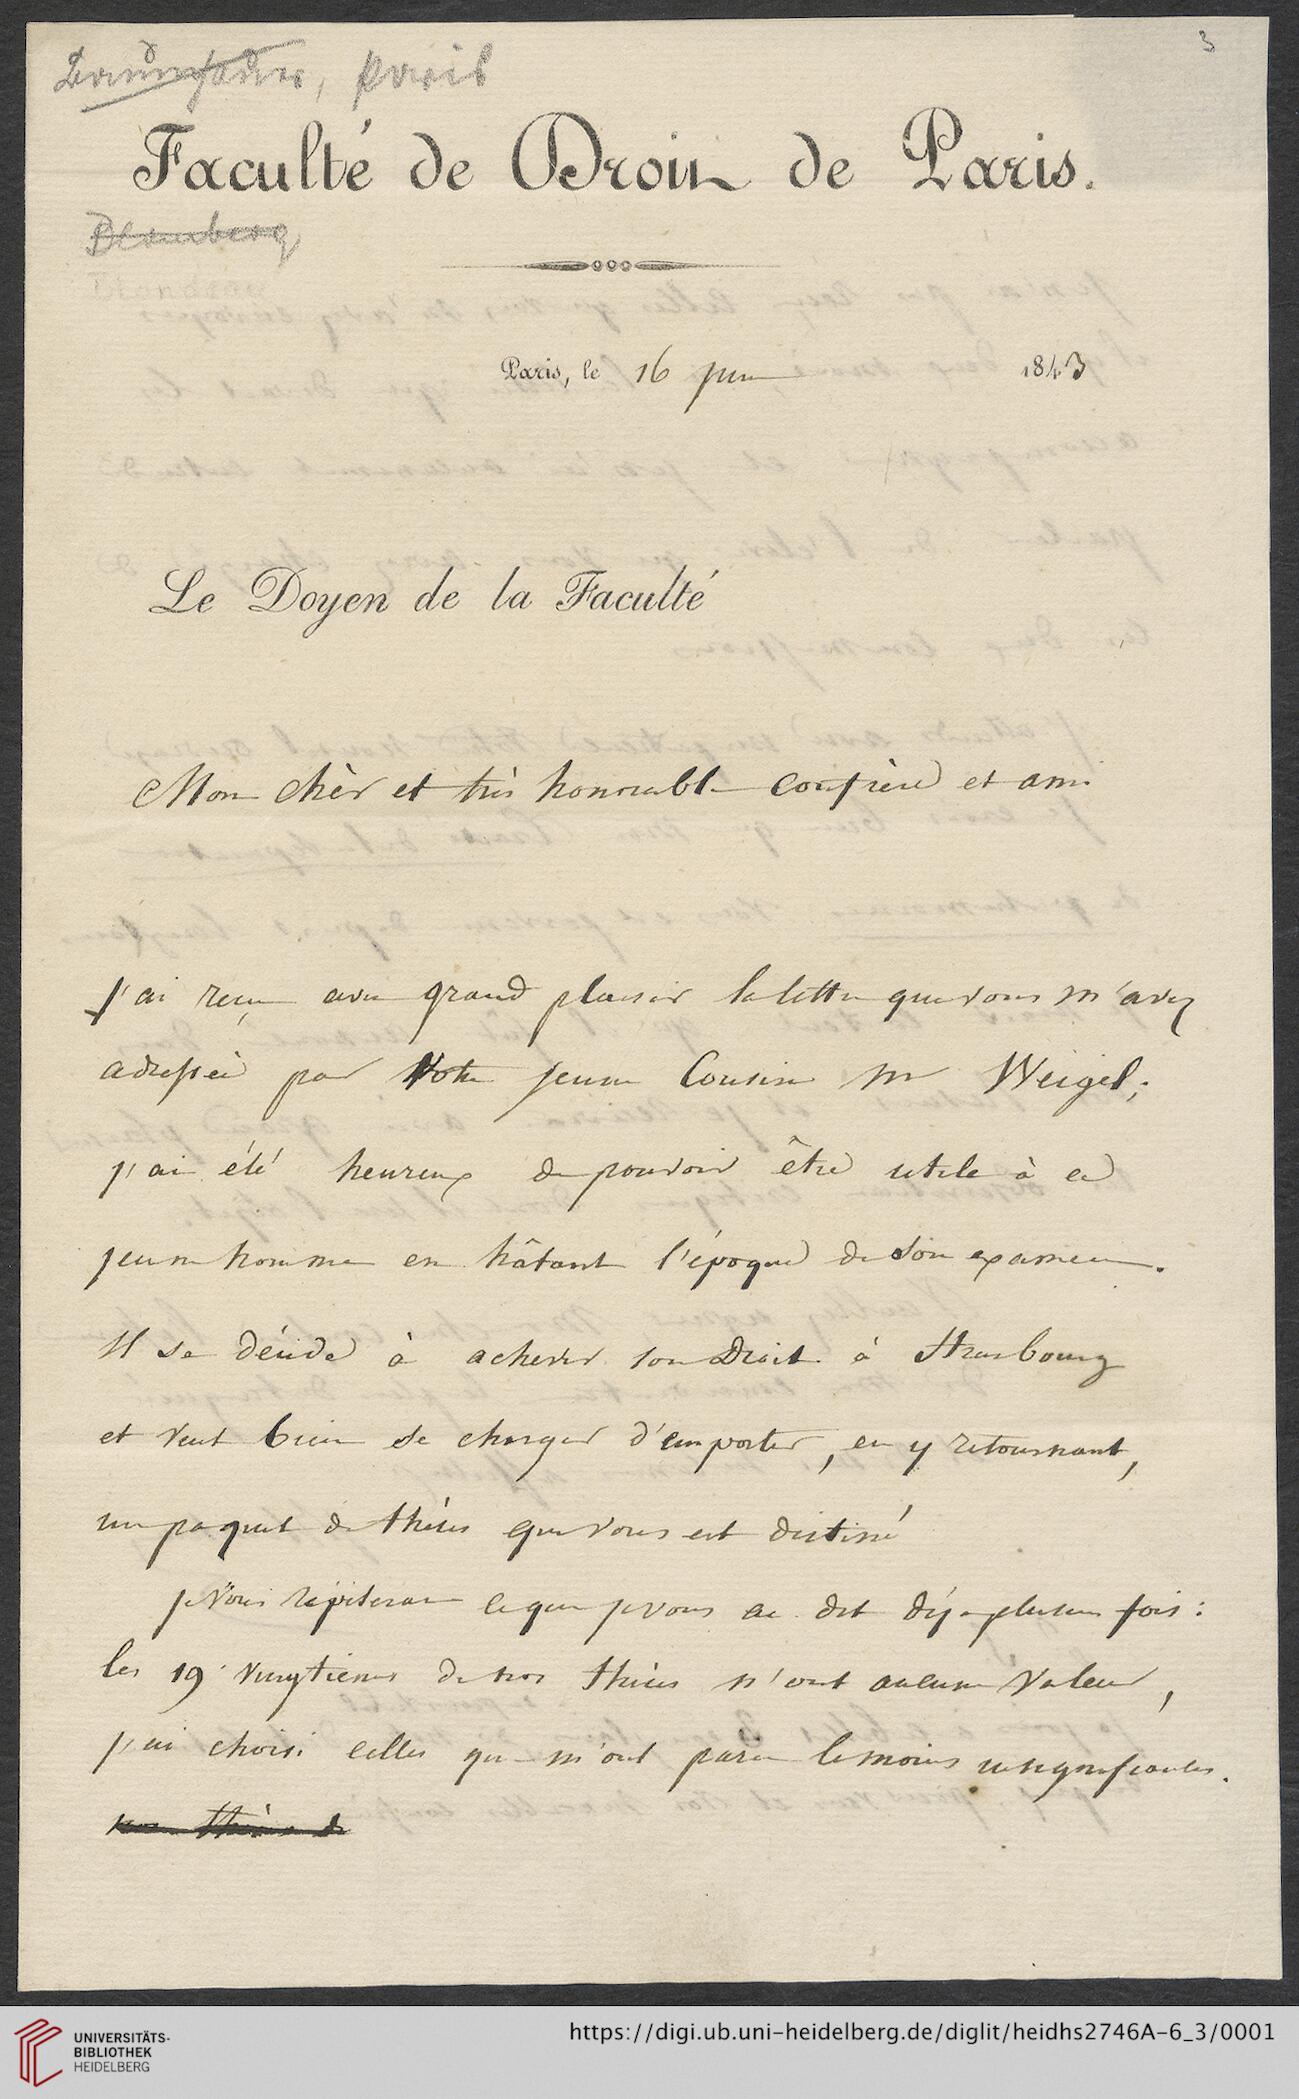 3
Paris
Faculté de Droit de Paris.
Blomberg
Blondeau
Paris, le 16 juin 1843
Le Doyen de la Faculté
Mon chèr et très honorable confrère et ami
J'ai reçu avec grand plaisir la lettre que vous m'avez
adressée par Votre jeune Cousin Mr Weigel;
j'ai été heureux de pouvoir être utile à ce
jeune homme en hâtant l'époque de son examen.
Il se décide à achever son Droit à Strasbourg
et veut bien se charger d'emporter, en y retournant,
un paquet de thèses qui vous est destiné
je vous répéterai ce que je vous ai dit déjà plusieurs fois:
les 19 vingtièmes de nos thèses n'ont aucune valeur,
j'ai choisi celles qui m'ont paru le moins insignifiantes.
nos thèses de
UNIVERSITÄTS-
BIBLIOTHEK
HEIDELBERG
https://digi.ub.uni-heidelberg.de/diglit/heidhs2746A-6_3/0001